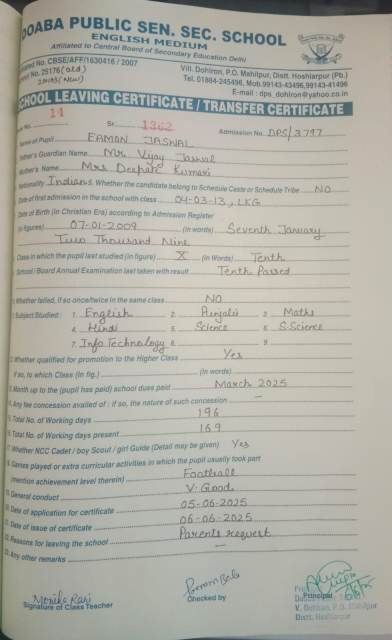 DOABA PUBLIC SEN. SEC. SCHOOL
ENGLISH MEDIUM
Affiliated to Central Board of Secondary Education Delhi
No. CBSE/AFF/1630416 / 2007
No. 25176 (old)
(New)
Vill. Dohlron, P.O. Mahilpur, Distt. Hoshiarpur (Pb.)
Tel. 01884-245496, Mob.99143-43496,99143-41496
E-mail : dps_dohlron@yahoo.co.in
SCHOOL LEAVING CERTIFICATE / TRANSFER CERTIFICATE
No. 14 Sr. 1362 Admission No. DPS/3797
Name of Pupil EAMON JASWAL
Father's Guardian Name Mr. Vijay Jaswal
Mother's Name Mrs Deepali Kumari
Nationality Indian 5. Whether the candidate belong to Schedule Caste or Schedule Tribe NO
Date of first admission in the school with class 04-03-13, LKG
Date of Birth (in Christian Era) according to Admission Register
(in figures) 07-01-2009 (in words) Seventh January
Two Thousand Nine
Class in which the pupil last studied (in figure) X (in Words) Tenth
School / Board Annual Examination last taken with result Tenth Passed
Whether failed, if so once/twice in the same class NO
Subject Studied: 1. English 2. Punjabi 3. Maths
4. Hindi 5. Science 6. S.Science
7. Info Technology 8. 9.
Whether qualified for promotion to the Higher Class Yes
If so, to which Class (in fig.) (in words)
Month up to the (pupil has paid) school dues paid March 2025
Any fee concession availed of : if so, the nature of such concession —
Total No. of Working days 196
Total No. of Working days present 169
Whether NCC Cadet / boy Scout / girl Guide (Detail may be given) Yes
Games played or extra curricular activities in which the pupil usually took part
(mention achievement level therein) Football
General conduct V. Good
Date of application for certificate 05-06-2025
Date of issue of certificate 06-06-2025
Reasons for leaving the school Parents request
Any other remarks —
Monika Rani
Signature of Class Teacher
Checked by
Principal
V. Dohlron, P.O. Mahilpur
Distt. Hoshiarpur